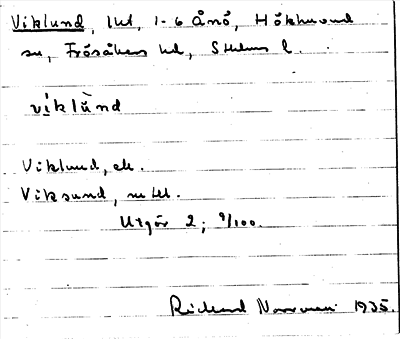 Viklund, lht, 1-6 Ånö, Hökhuvud
sn, Frösåkers hd, Sthlms l.
viklùnd
Viklund, ek.
Viksund, mtl.
Utgör 2; 9/100.
Rickard Norrman 1935.